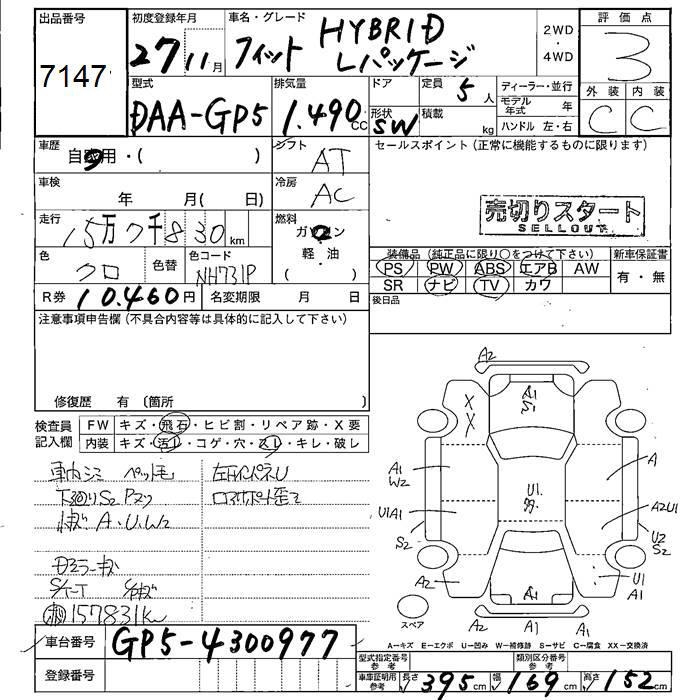 出品番号 初度登録年月 車名・グレード 2WD ・ 4WD 評価点
7147 27 11月 フィット HYBRID Lパッケージ 3
型式 排気量 ドア 定員 5人 ディーラー・並行 外装 内装
DAA-GP5 1.490cc 形状 SW 積載 kg モデル年式 年 C C
ハンドル 左・右
車歴 自家用・( ) シフト AT セールスポイント(正常に機能するものに限ります)
車検 年 月( 日) 冷房 AC
走行 15万7千830km 燃料 ガソリン 軽・油 ( ) 売切りスタート
SELLOUT
色 クロ 色替 色コード NH731P 装備品(純正品に限り○をつけて下さい) 新車保証書
PS PW ABS エアB AW 有・無
SR ナビ TV カワ
R券 10.460円 名変期限 月 日 後日品
注意事項申告欄(不具合内容等は具体的に記入して下さい)
修復歴 有(箇所 )
検査員記入欄 FW キズ・飛石・ヒビ割・リペア跡・X要
内装 キズ・汚レ・コゲ・穴・スレ・キレ・破レ
車内シミ ペット毛
下廻りS2
キズ A・U・W2
157831km
車台番号 GP5-4300977
登録番号
A2
A1
S1
X
X
A1
W2
A
U1
U1A1
A2U1
S2
U2
S2
A2
A1
U1
A1
スペア
A2 A1 A1
A=キズ E=エクボ U=凹み W=補修跡 S=サビ C=腐食 XX=交換済
型式指定番号 参考 類別区分番号 参考
車庫証明用 参考 長さ 395cm 幅 169cm 高さ 152cm